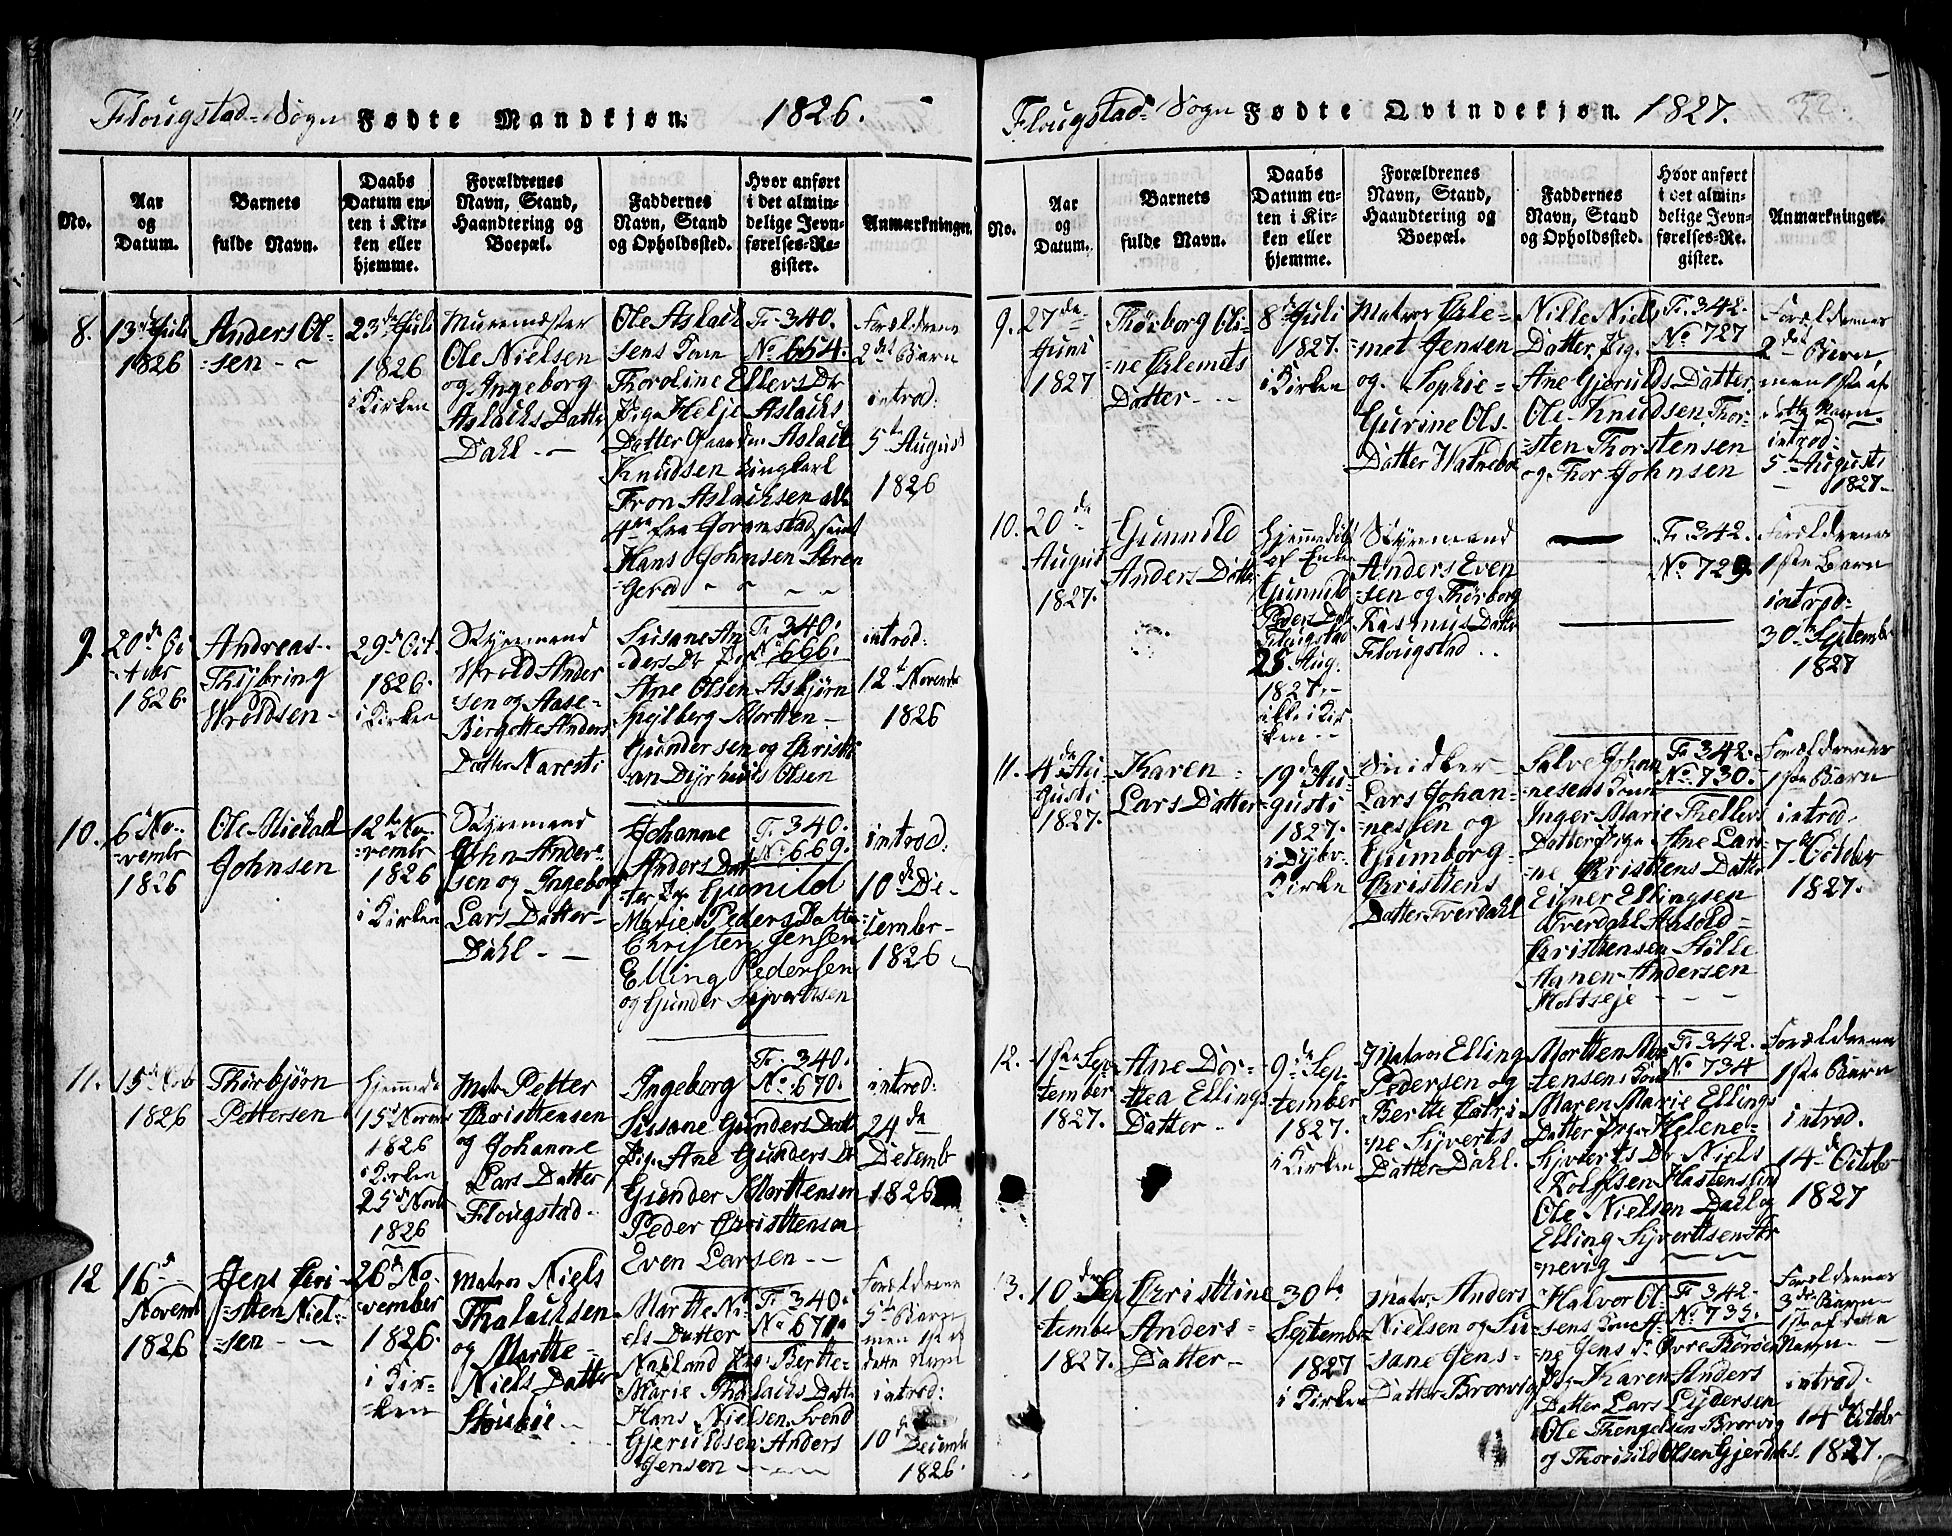 Flougstad Sogn Fødte Mandkjøn. 1826.
No.
Aar
og
Datum.
Barnets
fulde Navn.
Daabs
Datum en-
ten i Kir-
ken eller
hjemme.
Forældrenes
Navn, Stand,
Haandtering og
Boepæl.
Faddernes
Navn, Stand
og Opholdssted.
Hvor anført
i det almin-
delige Jevn-
førelses-Re-
gister.
Anmærkninger.
8.
13de Juli
1826
Anders Ol-
-sen - -
23de Juli
1826
i Kirken
Muremester
Ole Nielsen
og Ingeborg
Aslachs Datter
Dahl - -
Ole Aslach
sens Kone
Thoroline Ellevs Dr
Pige Helje Aslachs
Datter Aslach
Knudsen Ungkarl
Tron Aslachsen alle
4re fra samt
Hans Johnsen
Fr. 340.
No. 654.
Forældrenes
2det Barn
introd:
5te August
1826
9.
20de Oc
-tobr
1826.
Andreas
Thijbring
Wroldsen -
29de Oct.
1826.
i Kirken
Styrmand
Wrold Ander
sen og Aase-
Birgotte Anders
Datter Naresti
Susane An
ders Dr Pige
Ane Olsen Asbjørn
Spejlberg Mortten -
Gundersen og Christi
an Dyrhuus Olsen
Fr. 340.
No. 666.
introd:
12te Novembr
1826
10.
6te No-
-vembr
1826
Ole Mickael
Johnsen
12te No-
-vembr
1826
i Kirken
Styrmand
John Ander-
sen og Ingeborg
Lars Datter-
Dahl - -
Johanne
Anders Dat
ter Pige Gunild
Marie Peders Datter
Christen Jensen
Elling Pedersen
og Gunder Sijvertsen
Fr. 340.
No. 669.
introd:
10de De-
cember-
1826
11.
15de Nov
1826
Thorbjørn
Pettersen
hjemmed:
15de Novem
1826
i Kirken
25de Nov
1826
Matr Petter
Christtensen
og Johanne
Lars Datter
Flougstad-
Ingeborg
Susane Gunders Datt
Pige Ane Gunders Dr
Gunder Morttensen
Peder Christtensen
Even Larsen - -
Fr. 340.
No. 670.
introd:
24de
Decembr
1826
12
16de
Novemb
1826
Jens Chri-
-sten Niel-
-sen - -
26de No-
vember
1826.
i Kir-
-ken
Matros Niels
Thalachsen
og Martte-
Niels Datter
Martte Ni
els Datter
Pige Bertte-
Marie Datter
Hans Nielsen Svend
Gjeruldsen Anders
Jensen - - -
Fr. 340.
No. 671.
Forældrenes
5te Barn
men 1ste af
dette Navn
introd:
10de
Decembr
1826.
Flougstad Sogn Fødte Qvindekjøn. 1827. 32.
No.
Aar
og
Datum.
Barnets
fulde Navn.
Daabs
Datum en-
ten i Kir-
ken eller
hjemme.
Forældrenes
Navn, Stand,
Haandtering og
Boepæl.
Faddernes
Navn, Stand
og Opholdssted.
Hvor anført
i det almin-
delige Jevn-
førelses-Re-
gister.
Anmærkninger.
9.
27de
Juni
1827
Thorborg Oli-
-ne Clemets
Datter - -
8de Juli
1827.
i Kirken
Matros Cle-
-met Jensen
og Sophie-
Gurine Ols-
Datter Watnebo
Nille Niels
Datter, Pig.
Ane Gjerulds Datter
Ole Knudsen, Thor-
-sten Thorstensen
og Thor Johnsen
Fr. 342.
No. 727
Forældrenes
2det Barn
men 1ste af
dette Navn
introd:
5te Augusti
1827-
10.
20de
August
1827.
Gunnild
Anders Datter
Hjemmedøbt
af Enken
Gunnild
Peders Datt
Flougstad
25 Aug.
1827.-
ikke i Kir
ken - -
Styrmand
Anders Even
-sen og Thorborg
Rasmus Datter
Flougstad. . .
Fr. 342.
No. 729.
Forældrenes
1ste Barn
introd:
30te Septembr
1827
11.
4de Au
gusti
1827.
Karen-
Lars Datter
19de Au-
gusti
1827.
i Dybv-
Kirke
Snidker
Lars Johan-
nessen og
Gumborg-
Christtens
Datter Tverdahl
Salve Johan
-nesens Kone
Inger Marie Thellevs
Datter Pige Ane Lars
-ne Christtens Datter
Eigner Ellingsen
Tverdahl Aasold-
Christtensen Stølle
Hanen Andersen
Holtseje - - -
Fr. 342.
No. 730.
Forældrenes
1ste Barn
introd.
7de October
1827.
12.
1ste Sep
tember
1827.
Ane Dor-
ttea Ellings
Datter -
9de Sep-
tember
1827.
i Kirken
Matros Elling
Pedersen og
Bertte Catri
-ne Sijverts
Datter Dahl.
Mortten Mor
tensens Kone
Maren Marie Ellings
Datter Pige Helene-
Sijverts Dr Niels
Rolfsen Hastensund
Ole Nielsen Dahl og
Elling Sijverttsen
nevig
Fr. 342.
No 734
Forældrenes
1ste Barn
introd.
14de Octobr
1827
13.
10de Sep
-tember
1827.
Christtine
Anders-
Datter-
30te
Septembr
1827
i Kirken
Matr. Anders
Nielsen og Su-
sane Jens-
Datter Brorvig
Halvor Ol-
sens Kone A-
ne Jens Dr Øvre
Pige Karen Anders
Datter Lars Lydersen
Ole Thengelsen Brorvig
og Thorkild Olsen
Fr. 342.
No. 735.
Forældrenes
3de Barn-
1ste af dette
Navn-
introd.
14de Octobr
1827.